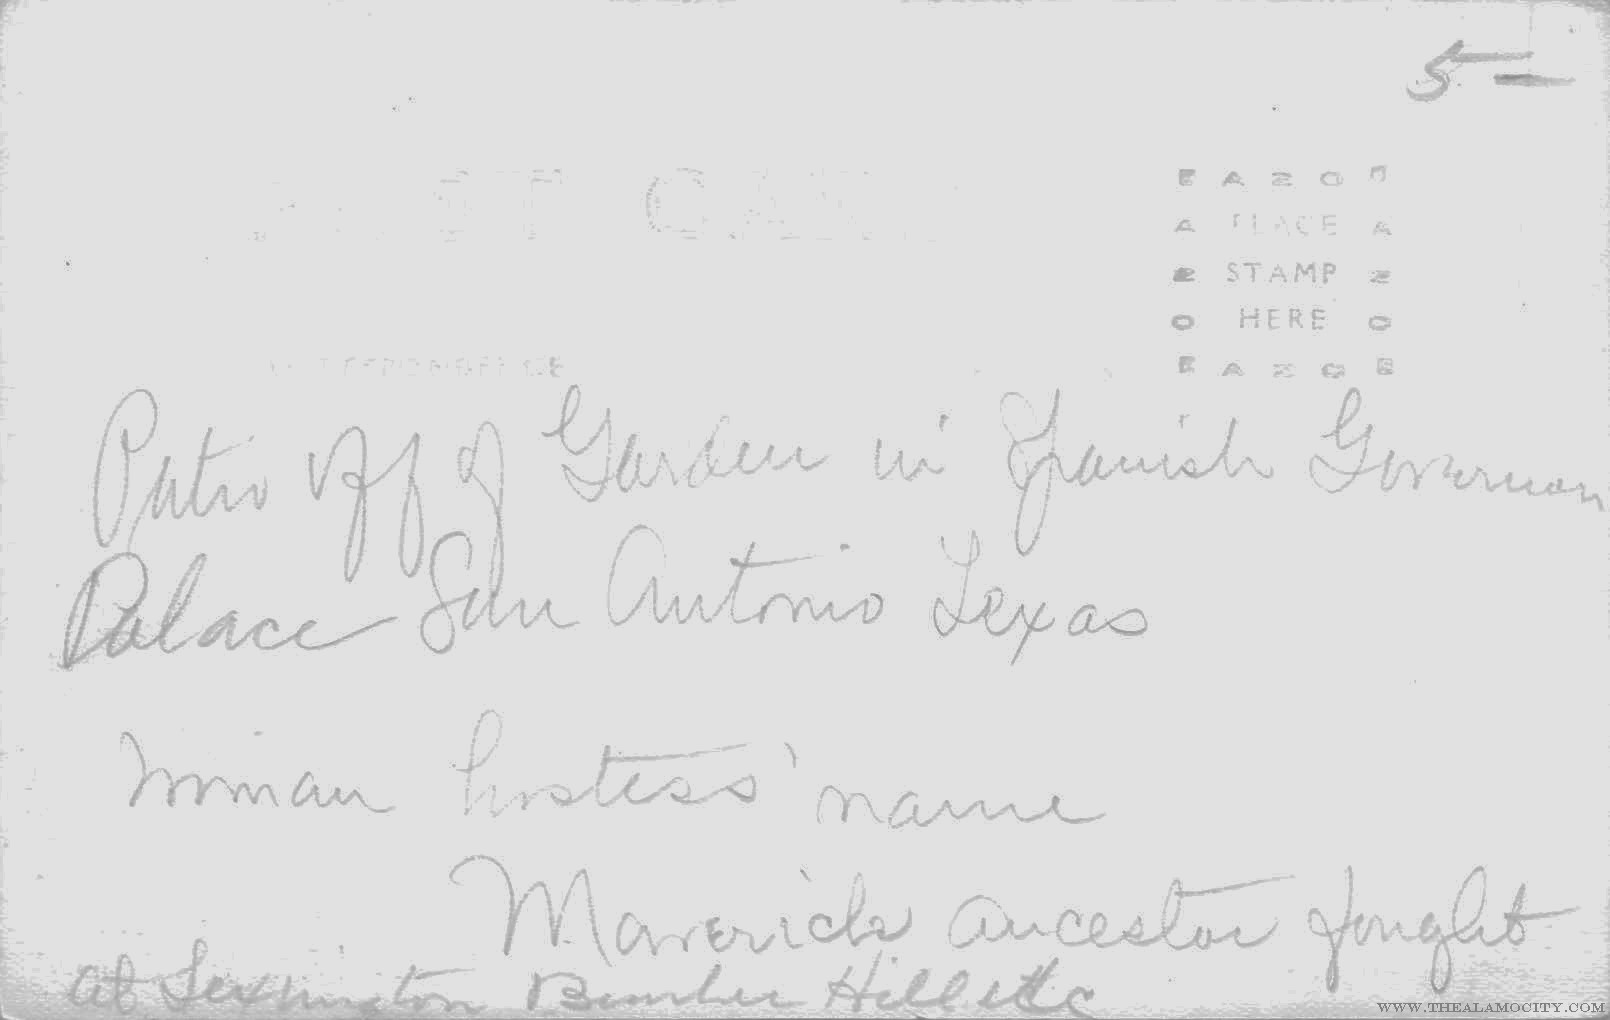 5 =
POST CARD
E A Z O
A PLACE A
Z STAMP Z
O HERE O
E A Z O E
CORRESPONDENCE
Patio off of Garden in Spanish Governor
Palace San Antonio Texas
woman hostess' name
Maverick ancestor fought
at Lexington Bunker Hill etc
WWW.THEALAMOCITY.COM